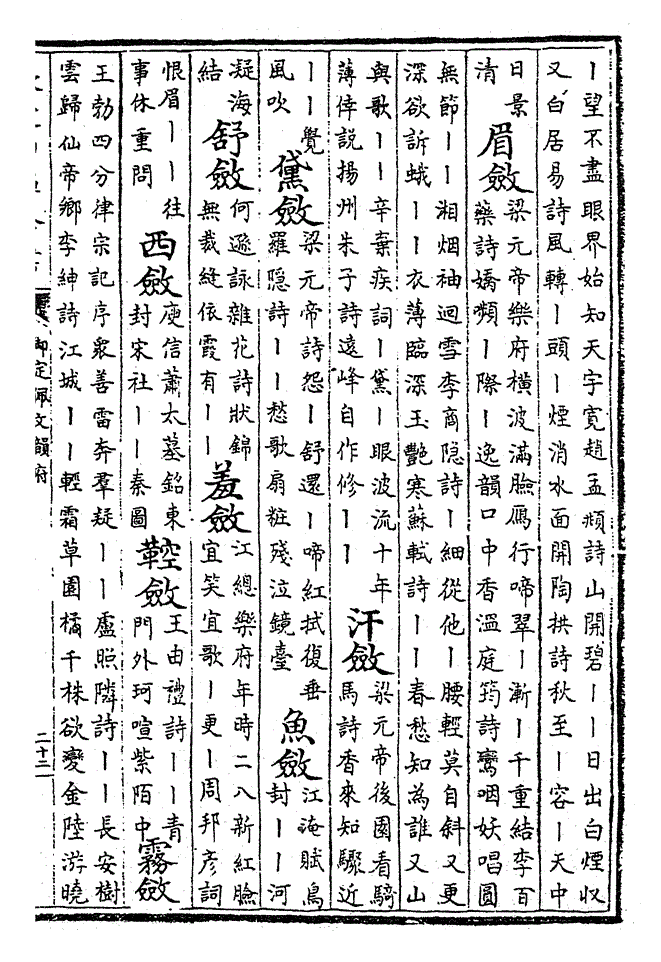 丨望不盡眼界始知天宇寛趙孟頫詩山開碧丨丨日出白煙収
又白居易詩風轉丨頭丨煙消水面開陶拱詩秋至丨容丨天中
日景
清
眉斂
梁元帝樂府横波滿臉鴈行啼翠丨漸丨千重結李百
藥詩嬌嚬丨際丨逸韻口中香溫庭筠詩鸞咽妖唱圓
無節丨丨湘烟袖迴雪李商隱詩丨細從他丨腰輕莫自斜又更
深欲訴蛾丨丨衣薄臨深玉艷寒蘇軾詩丨丨春愁知為誰又山
與歌丨丨辛棄疾詞丨黛丨眼波流十年
薄倖説揚州朱子詩遠峰自作修丨丨
汗斂
梁元帝後園看騎
馬詩香來知驟近
丨丨覺
風吹
黛斂
梁元帝詩怨丨舒還丨啼紅拭復垂
羅隱詩丨丨愁歌扇粧殘泣鏡臺
魚斂
江淹賦鳥
封丨丨河
凝海
結
舒斂
何遜詠雜花詩狀錦
無裁縫依霞有丨丨
羞斂
江總樂府年時二八新紅臉
宜笑宜歌丨更丨周邦彦詞
恨眉丨丨往
事休重問
西斂
庾信蕭太墓銘東
封宋社丨丨秦圖
鞚斂
王由禮詩丨丨青
門外珂喧紫陌中
霧斂
王勃四分律宗記序衆善雷奔羣疑丨丨盧照隣詩丨丨長安樹
雲歸仙帝鄉李紳詩江城丨丨輕霜草園橘千株欲變金陸游曉
御定佩文韻府
二十二